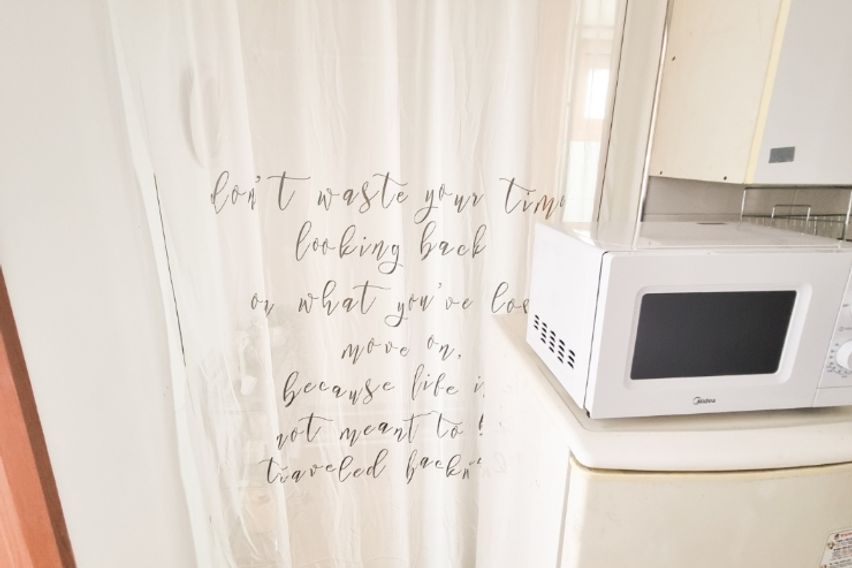 don't waste your time
looking back
on what you've los
move on,
because life i
not meant to b
traveled backw
Midea